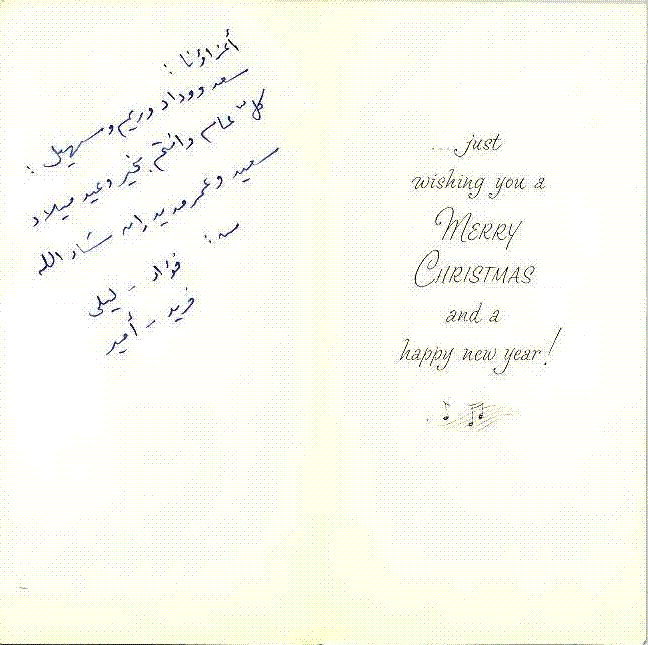 أعزاؤنا :
سعد ووداد وريم وسهيل :
كلّ عام وانتم بخير وعيد ميلاد
سعيد وعمر مديد إن شاء الله
من :
فؤاد - ليلى
فريد - أمير
....just
wishing you a
MERRY
CHRISTMAS
and a
happy new year!